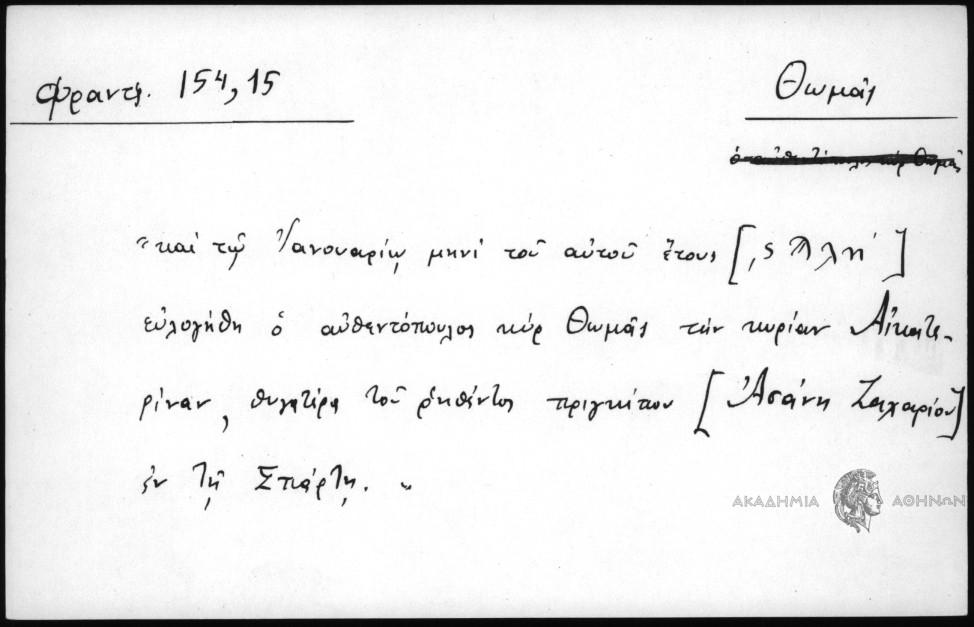 Φραντζ. 154,15
Θωμᾶς
ὁ αὐθεντόπουλος κὺρ Θωμᾶς
"καὶ τῷ Ἰανουαρίῳ μηνὶ τοῦ αὐτοῦ ἔτους [,ςϠλη']
εὐλογήθη ὁ αὐθεντόπουλος κὺρ Θωμᾶς τὴν κυρίαν Αἰκατε-
ρίναν, θυγατέρα τοῦ ῥηθέντος πριγκίπου [Ἀσάνη Ζαχαρίου]
ἐν τῇ Σπάρτῃ. "
ΑΚΑΔΗΜΙΑ ΑΘΗΝΩΝ